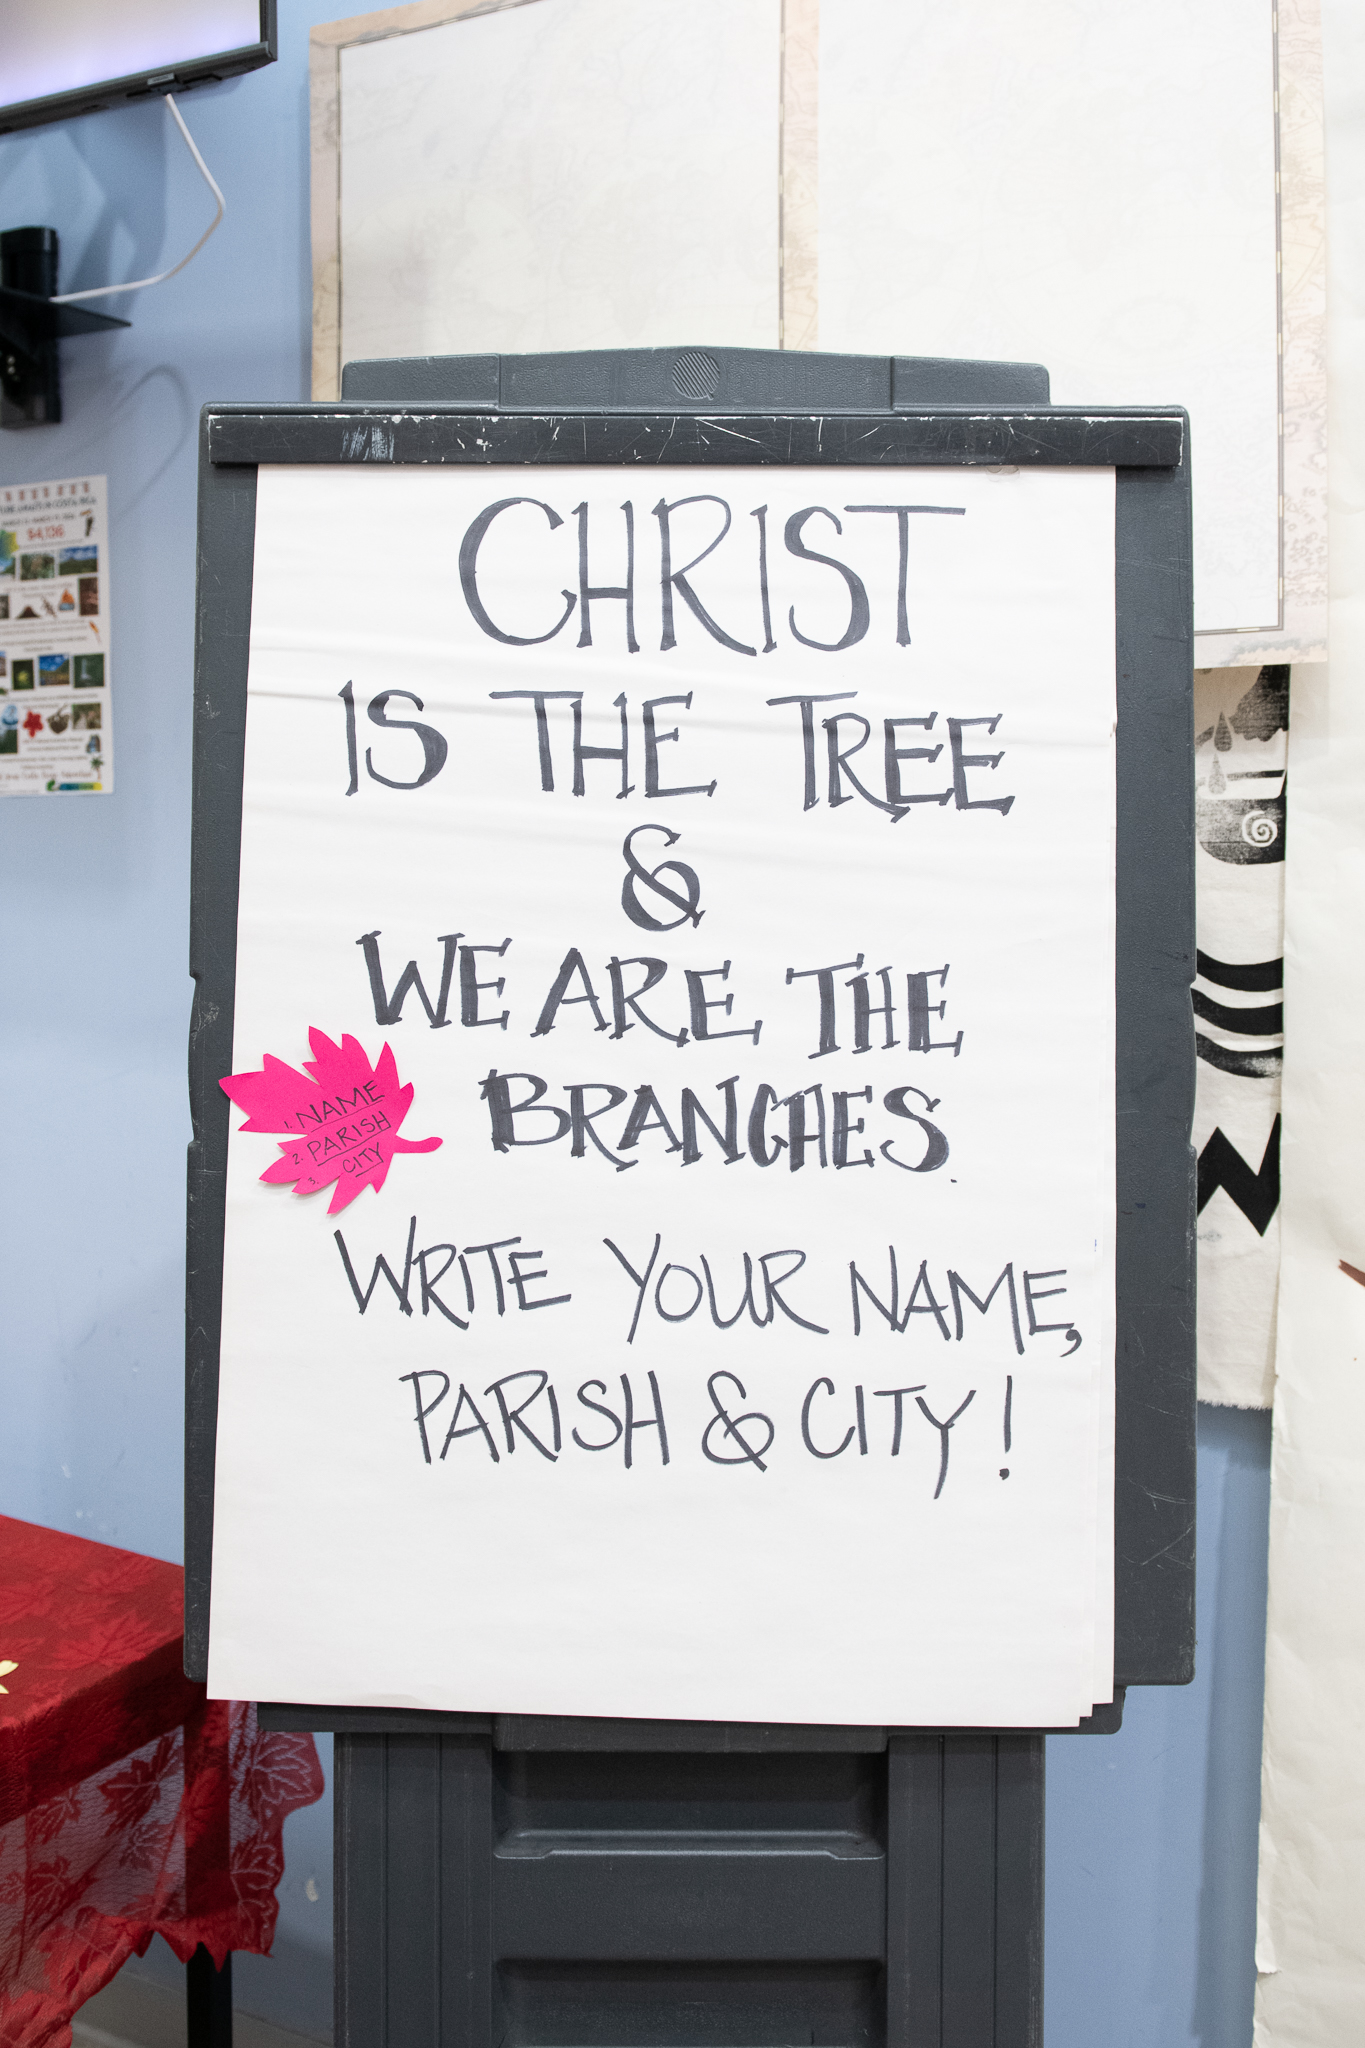 CHRIST
IS THE TREE
&
WE ARE THE
BRANCHES.
1. NAME
2. PARISH
3. CITY
WRITE YOUR NAME,
PARISH & CITY!
$4,136